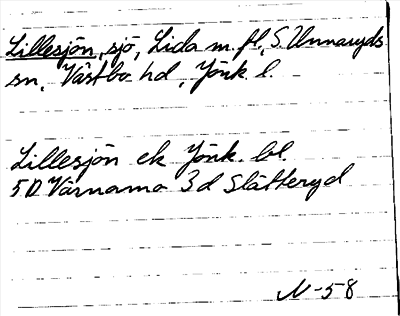 Lillesjön, sjö, Lida m. fl., S. Unnaryds
sn, Västbo hd, Jönk. l.
Lillesjön ek Jönk. bl.
5D Värnamo 3d Slätteryd
N-58